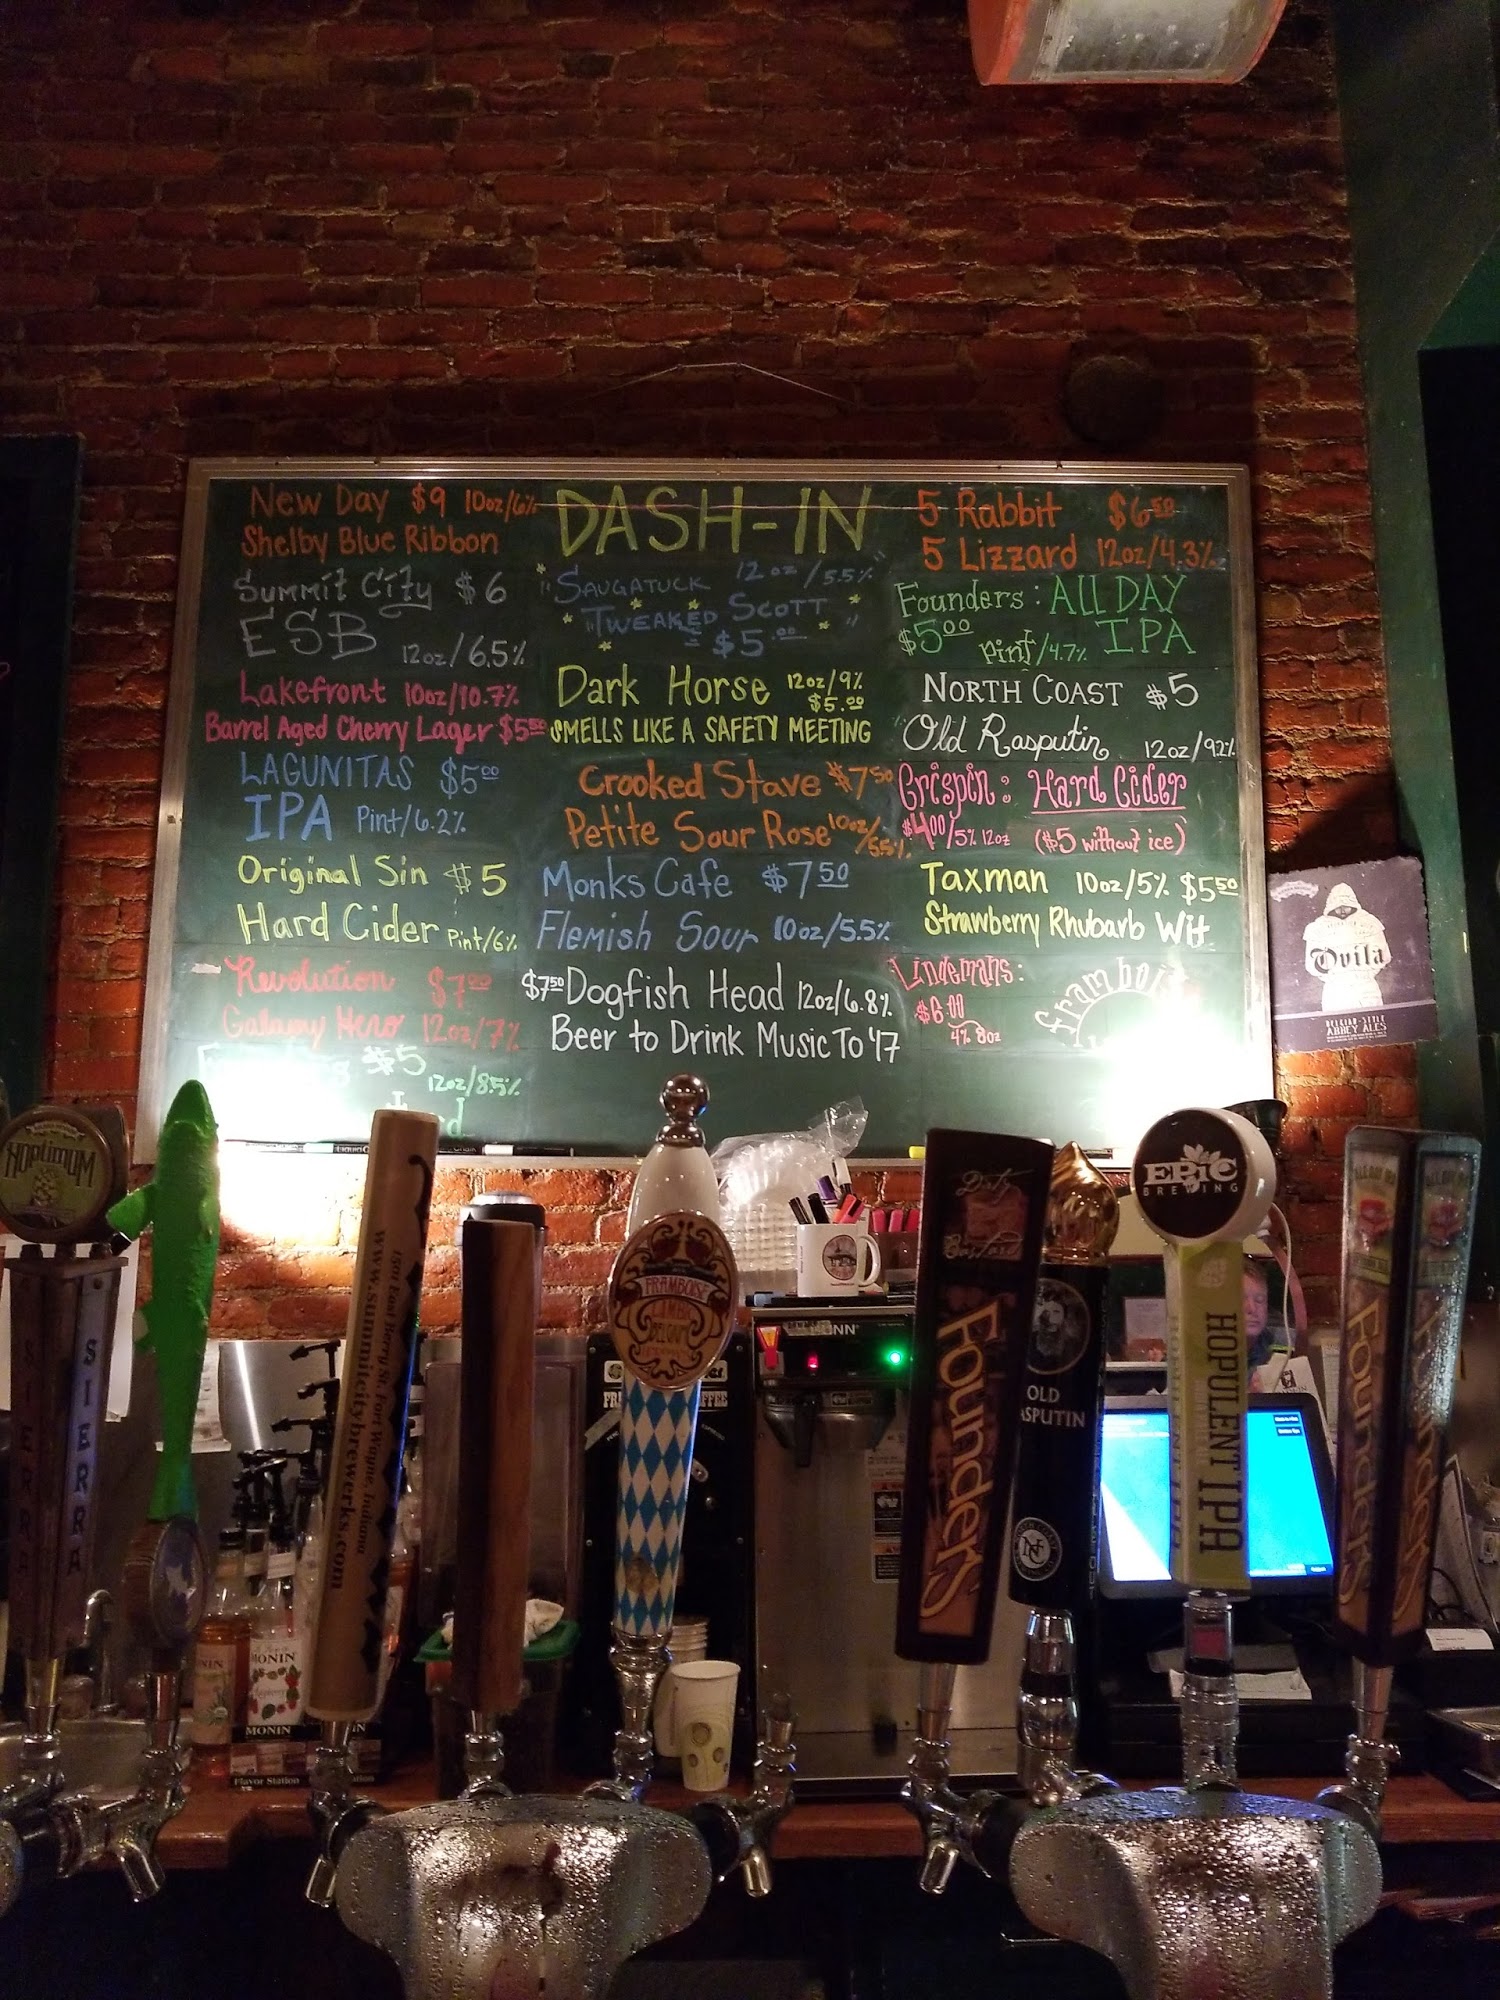 DASH-IN
New Day $9 10oz/6%
Shelby Blue Ribbon
Summit City $6
ESB 12oz/6.5%
Lakefront 10oz/10.7%
Barrel Aged Cherry Lager $5⁵⁰
LAGUNITAS $5⁰⁰
IPA Pint/6.2%
Original Sin $5
Hard Cider Pint/6%
Revolution $7⁰⁰
Galaxy Hero 12oz/7%
$5
12oz/8.5%
"SAUGATUCK 12oz/5.5%"
"TWEAKED SCOTT"
$5.⁰⁰
Dark Horse 12oz/9%
$5.⁰⁰
SMELLS LIKE A SAFETY MEETING
Crooked Stave $7⁵⁰
Petite Sour Rose 10oz/5.5%
Monks Cafe $7⁵⁰
Flemish Sour 10oz/5.5%
$7⁵⁰ Dogfish Head 12oz/6.8%
Beer to Drink Music To '17
5 Rabbit $6⁵⁰
5 Lizzard 12oz/4.3%
Founders: ALL DAY
$5⁰⁰ pint/4.7% IPA
NORTH COAST $5
Old Rasputin 12oz/9.2%
Crispin: Hard Cider
$4⁰⁰/5% 12oz ($5 without ice)
Taxman 10oz/5% $5⁵⁰
Strawberry Rhubarb Wit
Lindemans: Framboise
$6.⁰⁰
4% 8oz
Ovila
BELGIAN-STYLE
ABBEY ALES
HOPTIMUM
SIERRA
SIERRA
1501 East Berry St. Fort Wayne, Indiana
www.summitcitybrewerks.com
FRAMBOISE
Dirty
Bastard
Founders
OLD
RASPUTIN
NC
EPIC
BREWING
HOPULENT IPA
ALL DAY IPA
Founders
Founders
MONIN
MONIN
Flavor Station